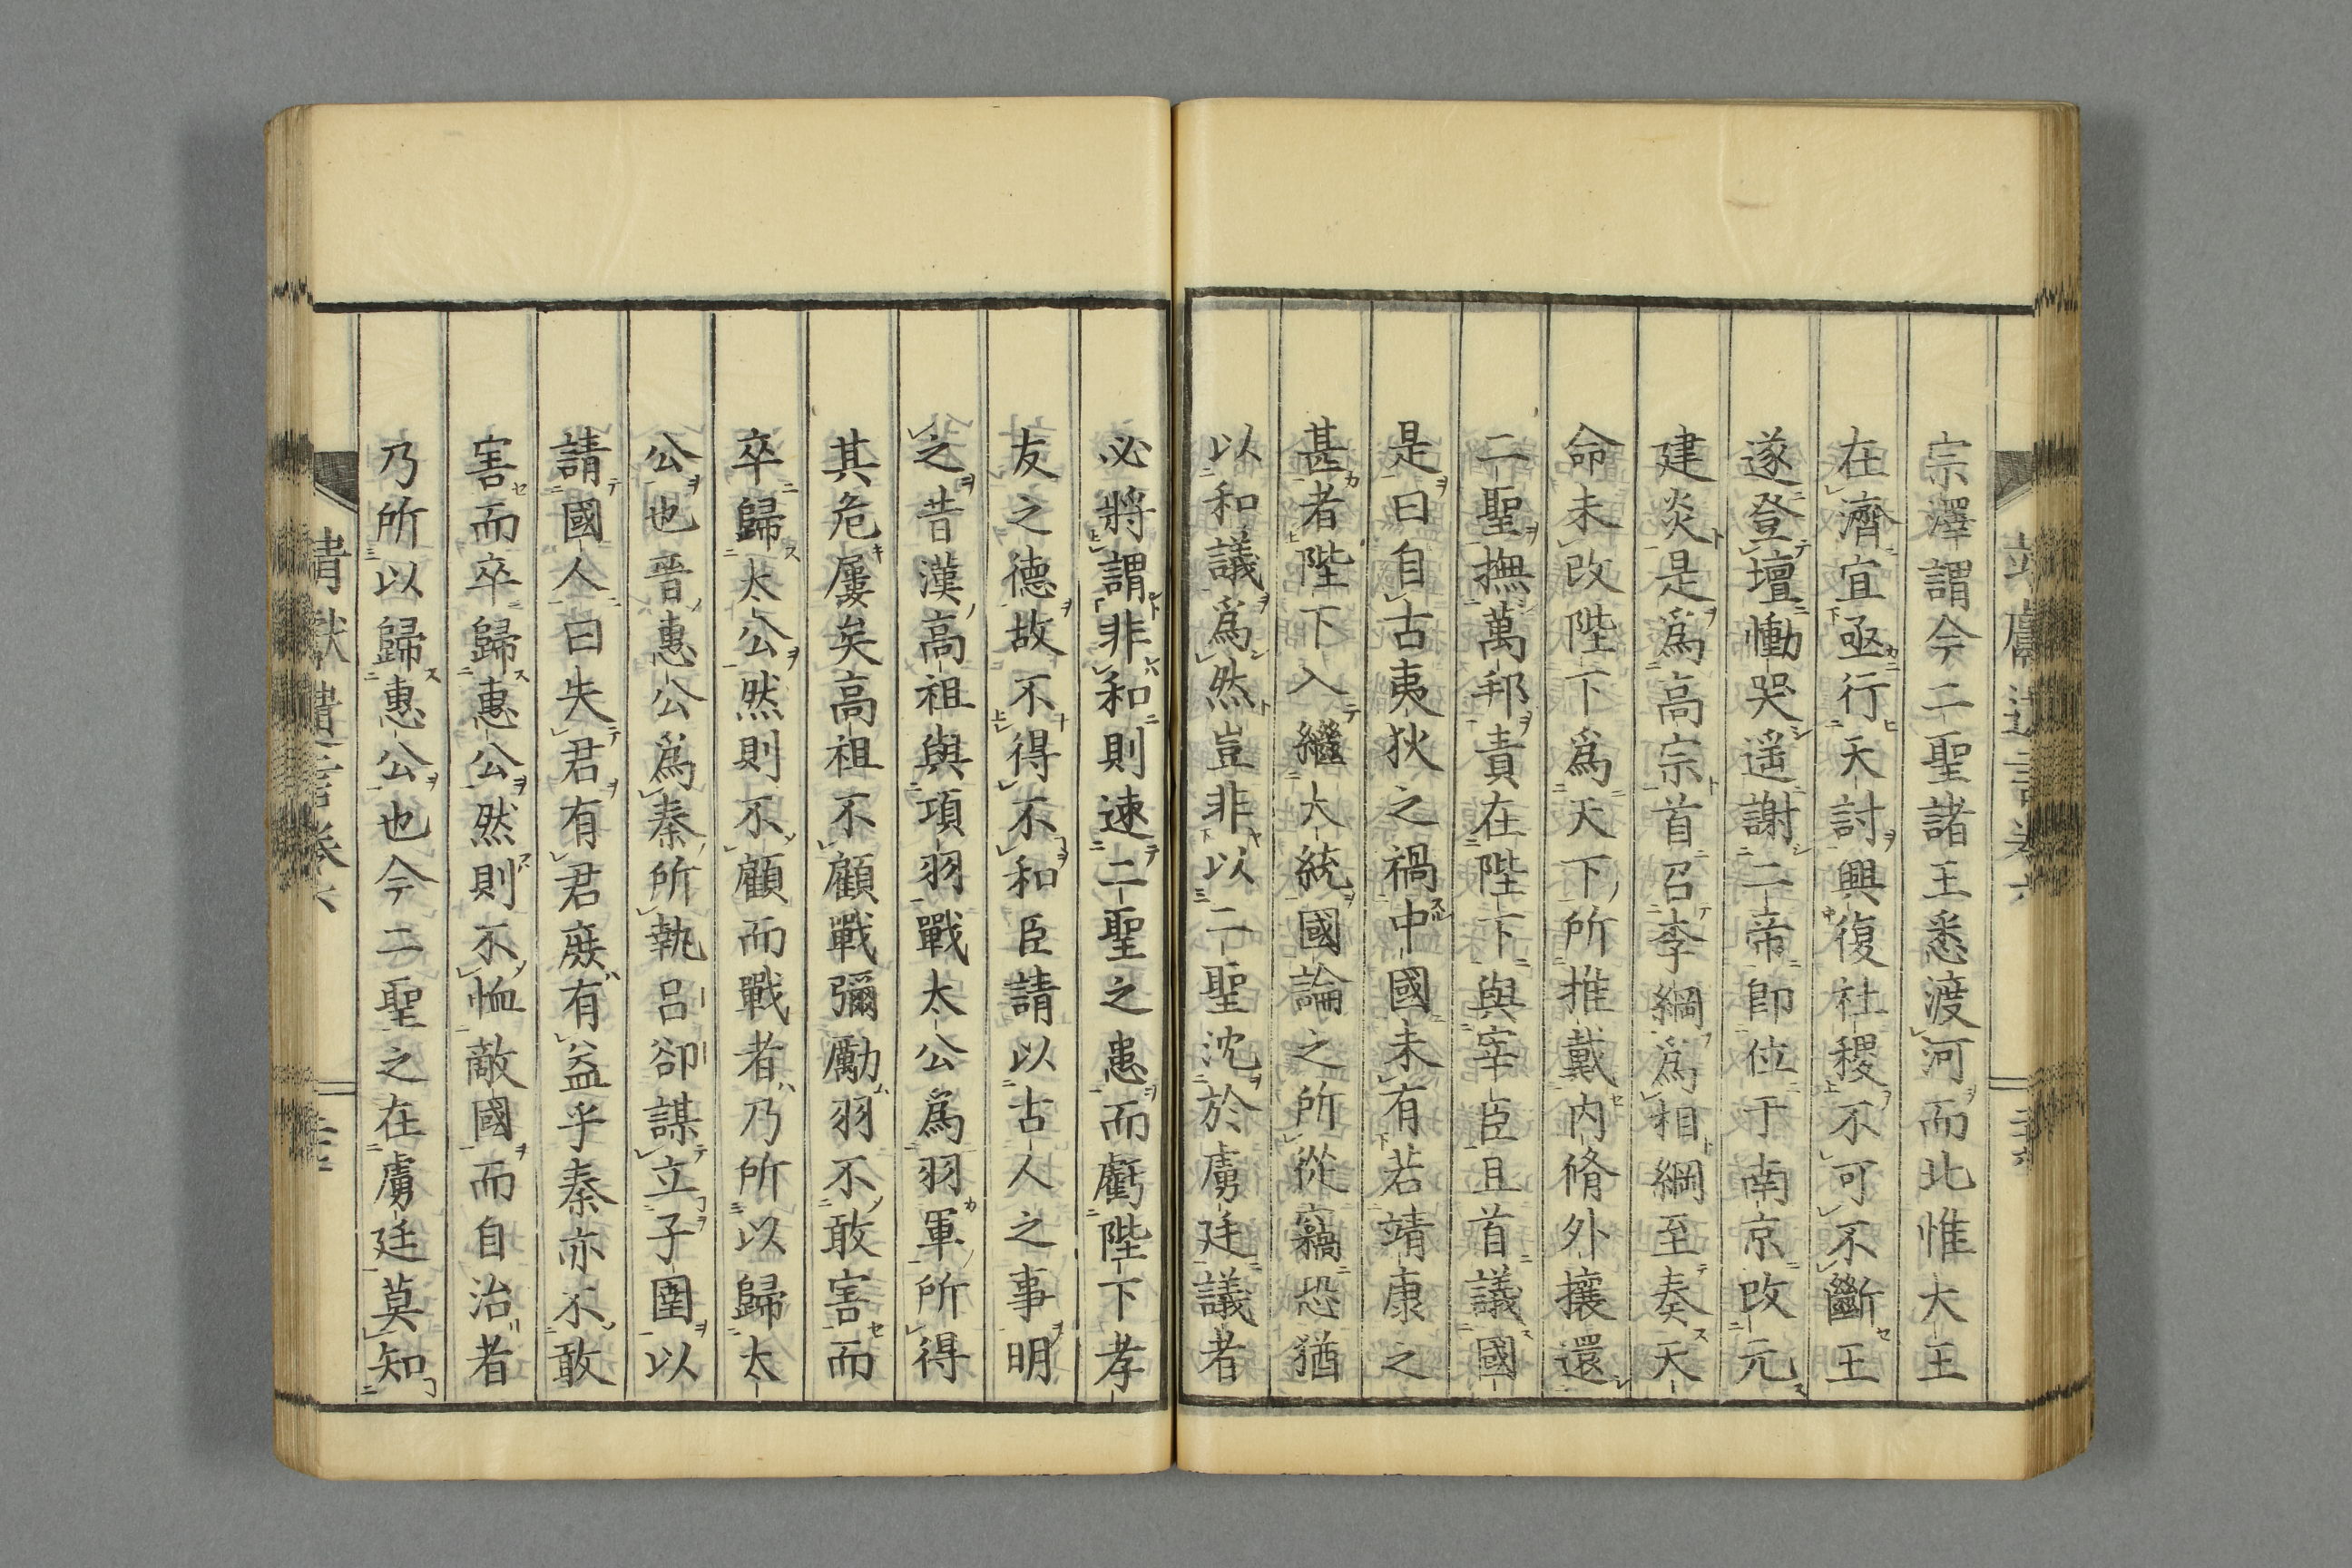 宗澤謂今二聖諸王悉渡河而北惟大王
在濟宜亟行天討興復社稷不可不斷王
遂登壇慟哭遥謝二帝即位于南京改元
建炎是爲高宗首召李綱爲相綱至奏天
命未改陛下爲天下所推戴内脩外攘還
二聖撫萬邦責在陛下與宰臣且首議國
是曰自古夷狄之禍中國未有若靖康之
甚者陛下入繼大統國論之所從竊恐猶
以和議爲然豈非以二聖沈於虜廷議者
必將謂非和則速二聖之患而虧陛下孝
友之德故不得不和臣請以古人之事明
之昔漢高祖與項羽戰太公爲羽軍所得
其危屢矣高祖不顧戰彌勵羽不敢害而
卒歸太公然則不顧而戰者乃所以歸太
公也晉惠公爲秦所執呂郤謀立子圉以
請國人曰失君有君庶有益乎秦亦不敢
害而卒歸惠公然則不恤敵國而自治者
乃所以歸惠公也今二聖之在虜廷莫知
靖獻遺言卷六